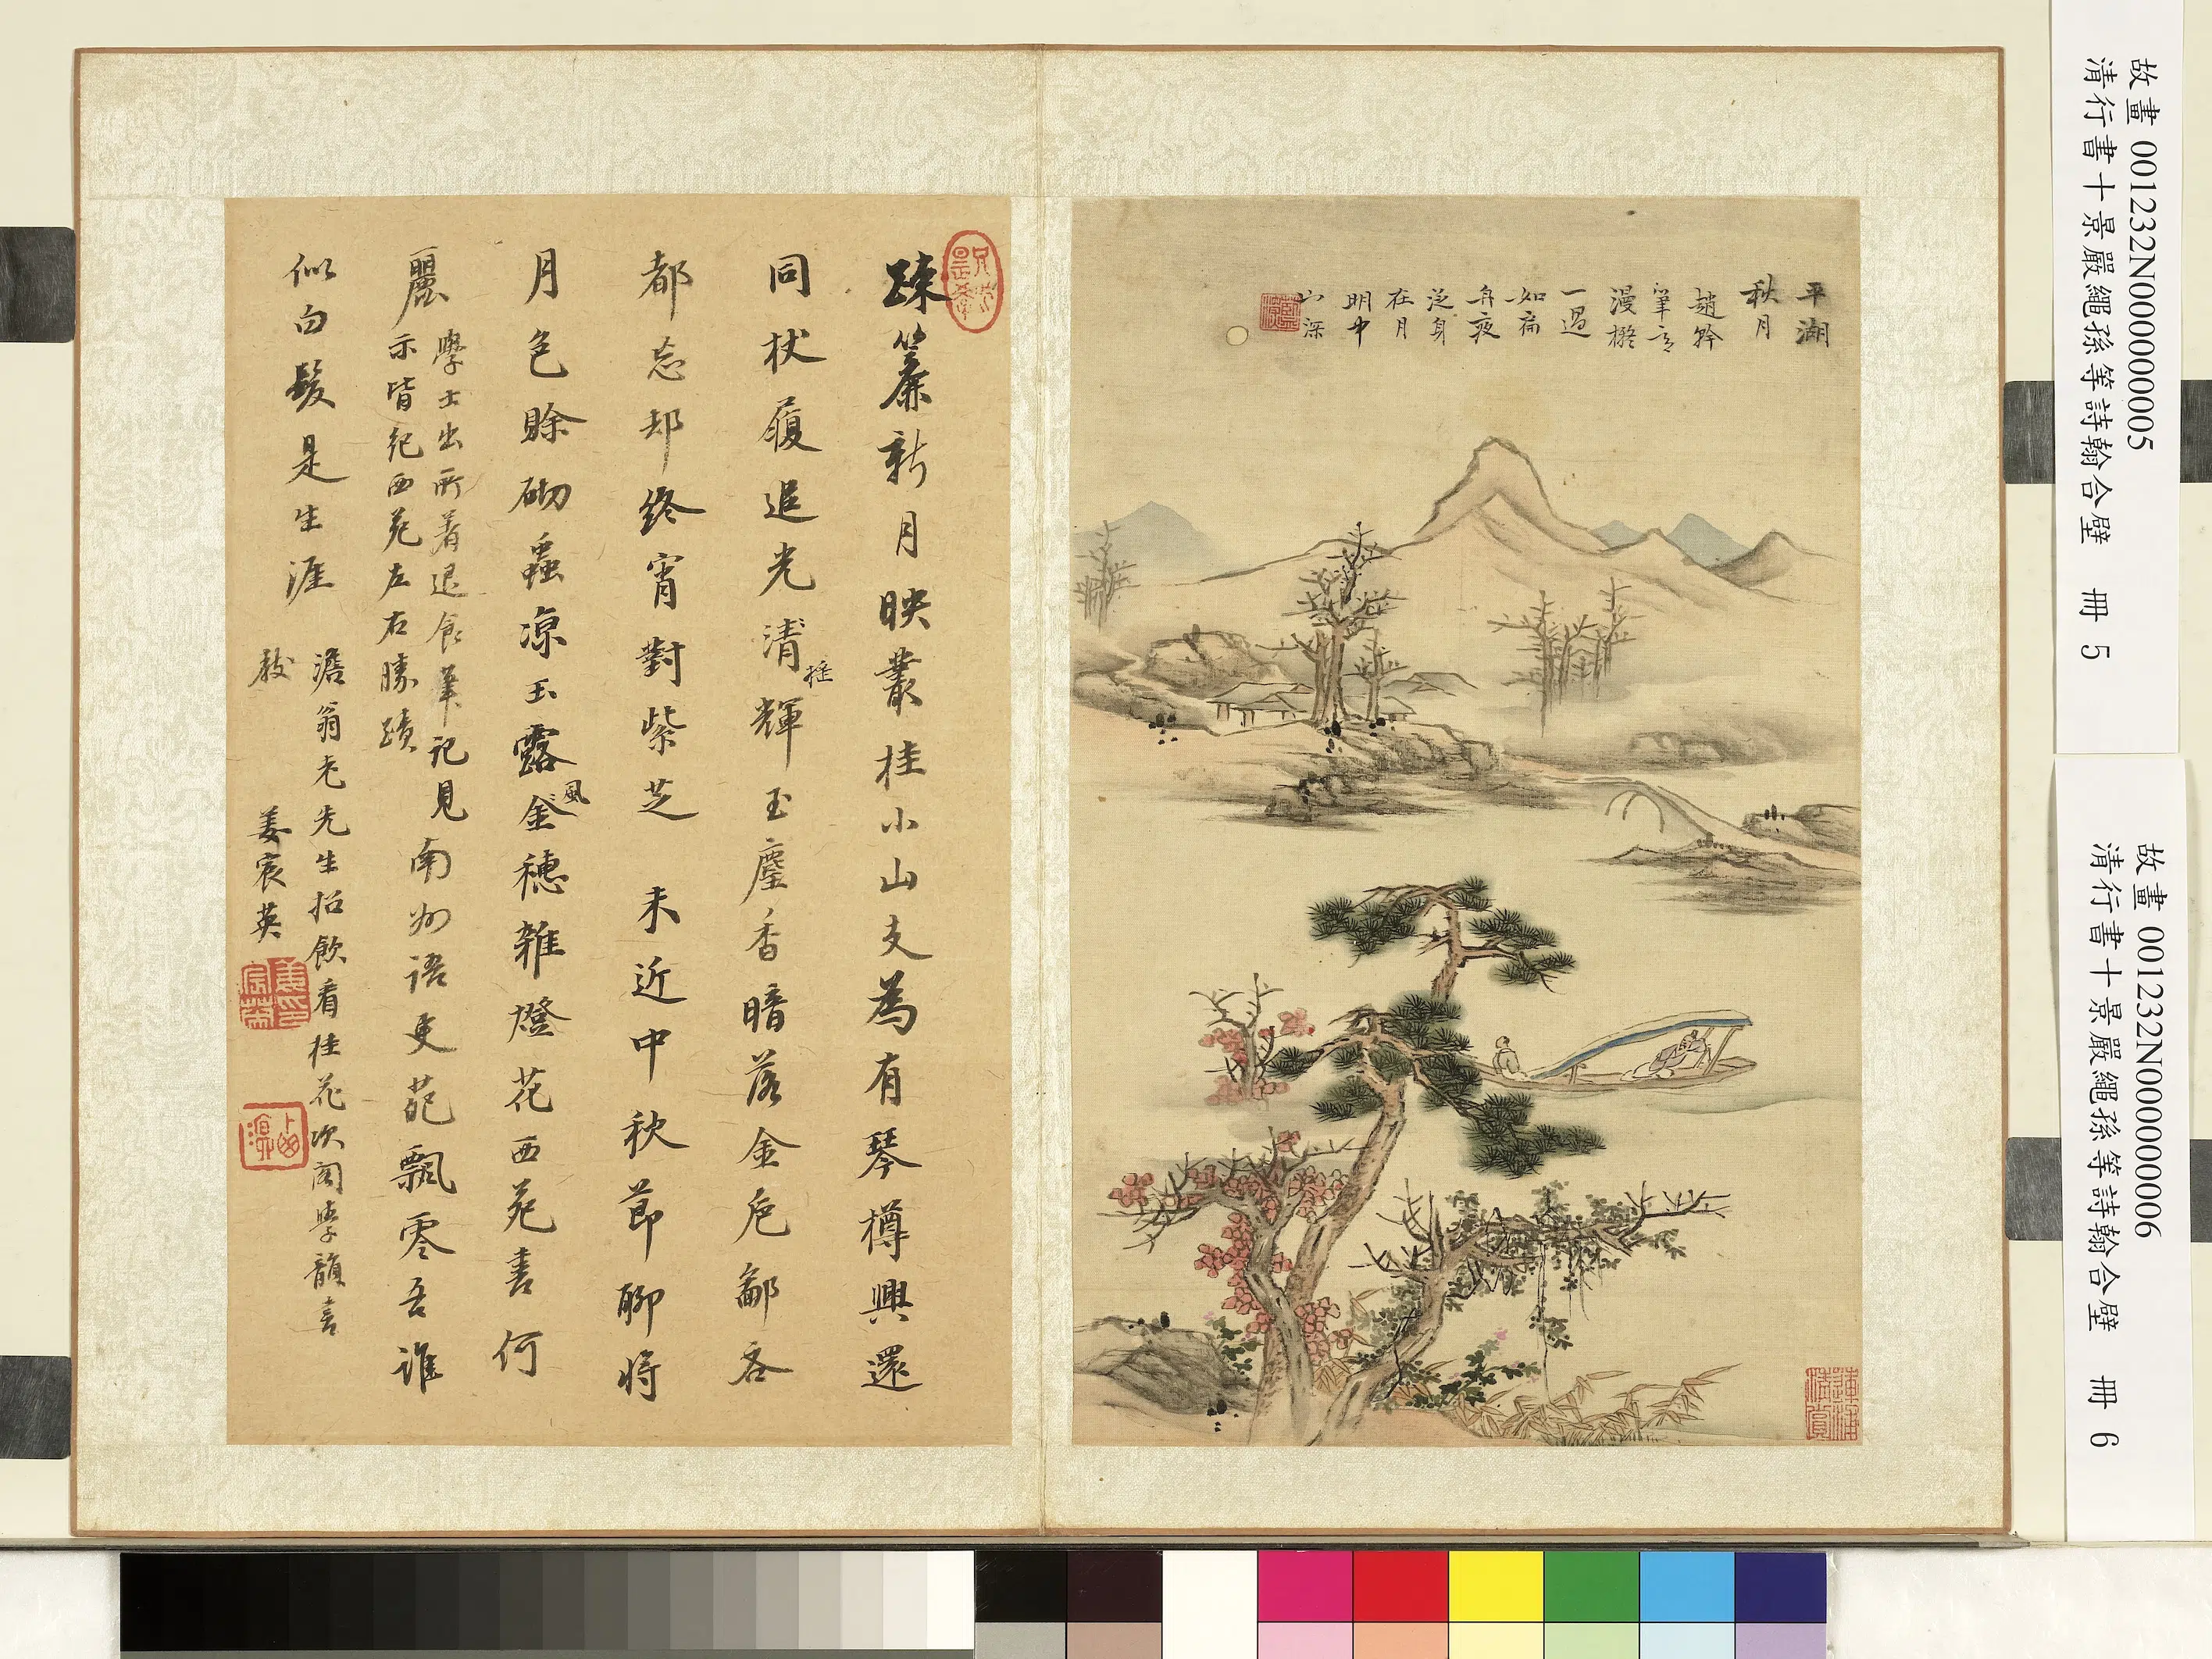 故畫 001232N000000005
清行書十景嚴繩孫等詩翰合壁 冊 5
故畫 001232N000000006
清行書十景嚴繩孫等詩翰合壁 冊 6
平湖
秋月
趙幹
筆意
漫橅
一過
如扁
舟夜
泛身
在月
明中
山深
疎簾新月映叢桂小山支為有琴樽興還
同杖履追光清輝玉塵香暗落金卮鄙吝
摇
都忘却終宵對紫芝 未近中秋節聊將
月色賒砌蟲凉玉露金穗雜燈花西苑書何
風
麗
學士出所著退食筆記見
示皆紀西苑左右勝蹟
南州語更葩飄零吾誰
似白髮是生涯
澹翁老先生招飲看桂花次閣學韻言
教
姜宸英